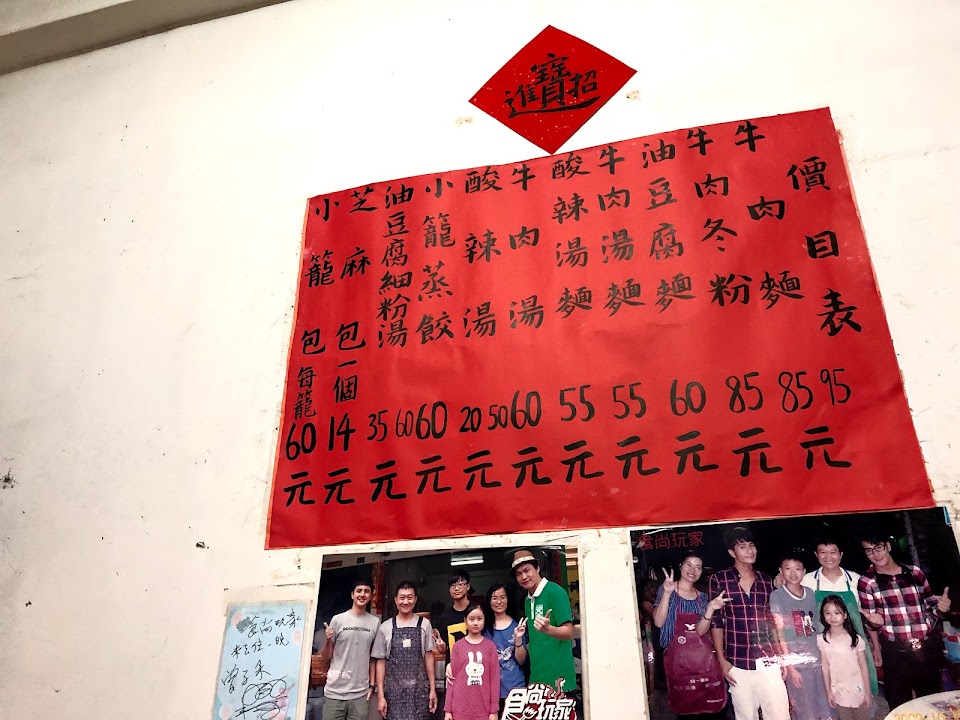 招財進寶
價目表
牛肉麵 85 95元
牛肉冬粉 85元
油豆腐麵 60元
牛肉湯麵 55元
酸辣湯麵 55元
牛肉湯 60元
酸辣湯 20 50元
小籠蒸餃 60元
油豆腐細粉湯 35 60元
芝麻包一個 14元
小籠包每籠 60元
食尚玩家
來去住一晚
食尚玩家
食尚玩家